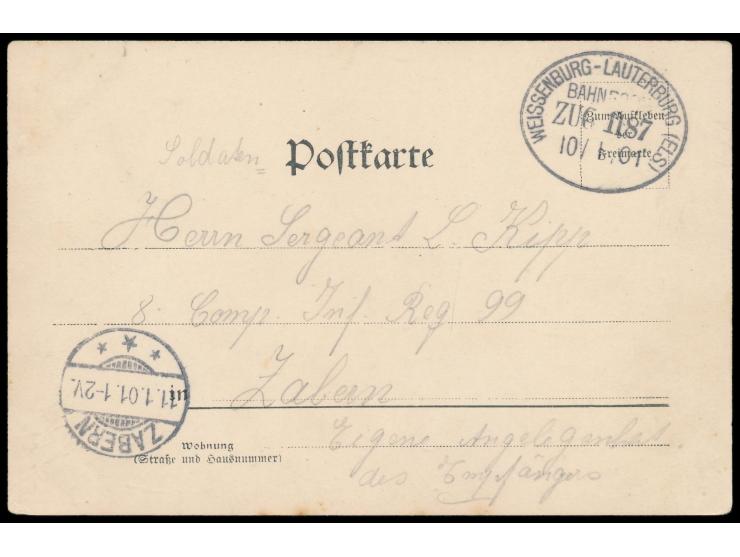 WEISSENBURG-LAUTERBURG (ELS)
BAHNPOST
ZUG 1187
10/ 1.01
Zum Aufkleben
der
Freimarke
Soldaten= Postkarte
Herrn Sergeant L. Kipp
8. Comp. Inf. Reg 99
in Zabern
11.1.01.1-2V.
ZABERN
Wohnung
(Straße und Hausnummer)
Eigene Angelegenheit
des Empfängers